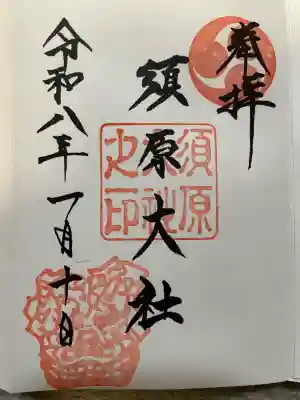 奉拝
須原大社
須原大社之印
令和八年一月十日